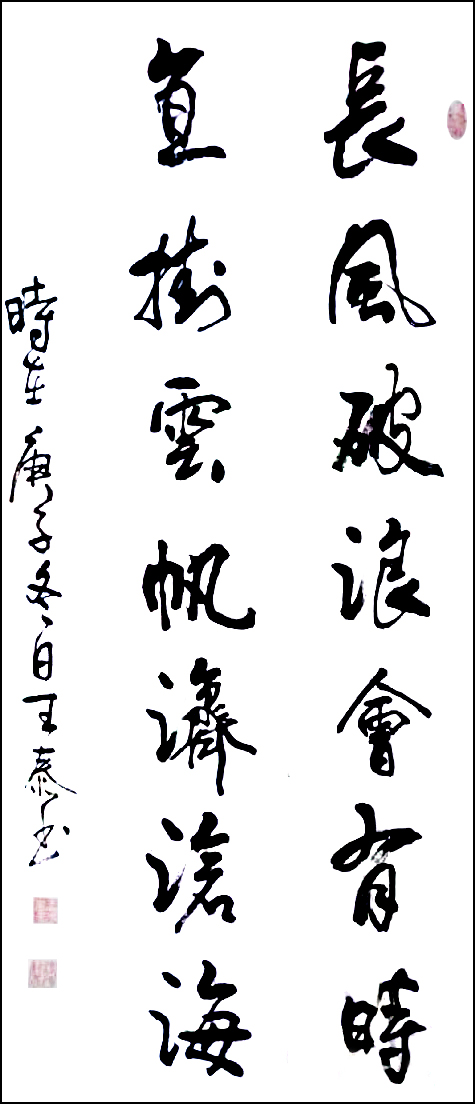 長風破浪會有時
直掛雲帆濟滄海
時在庚子冬日王泰书